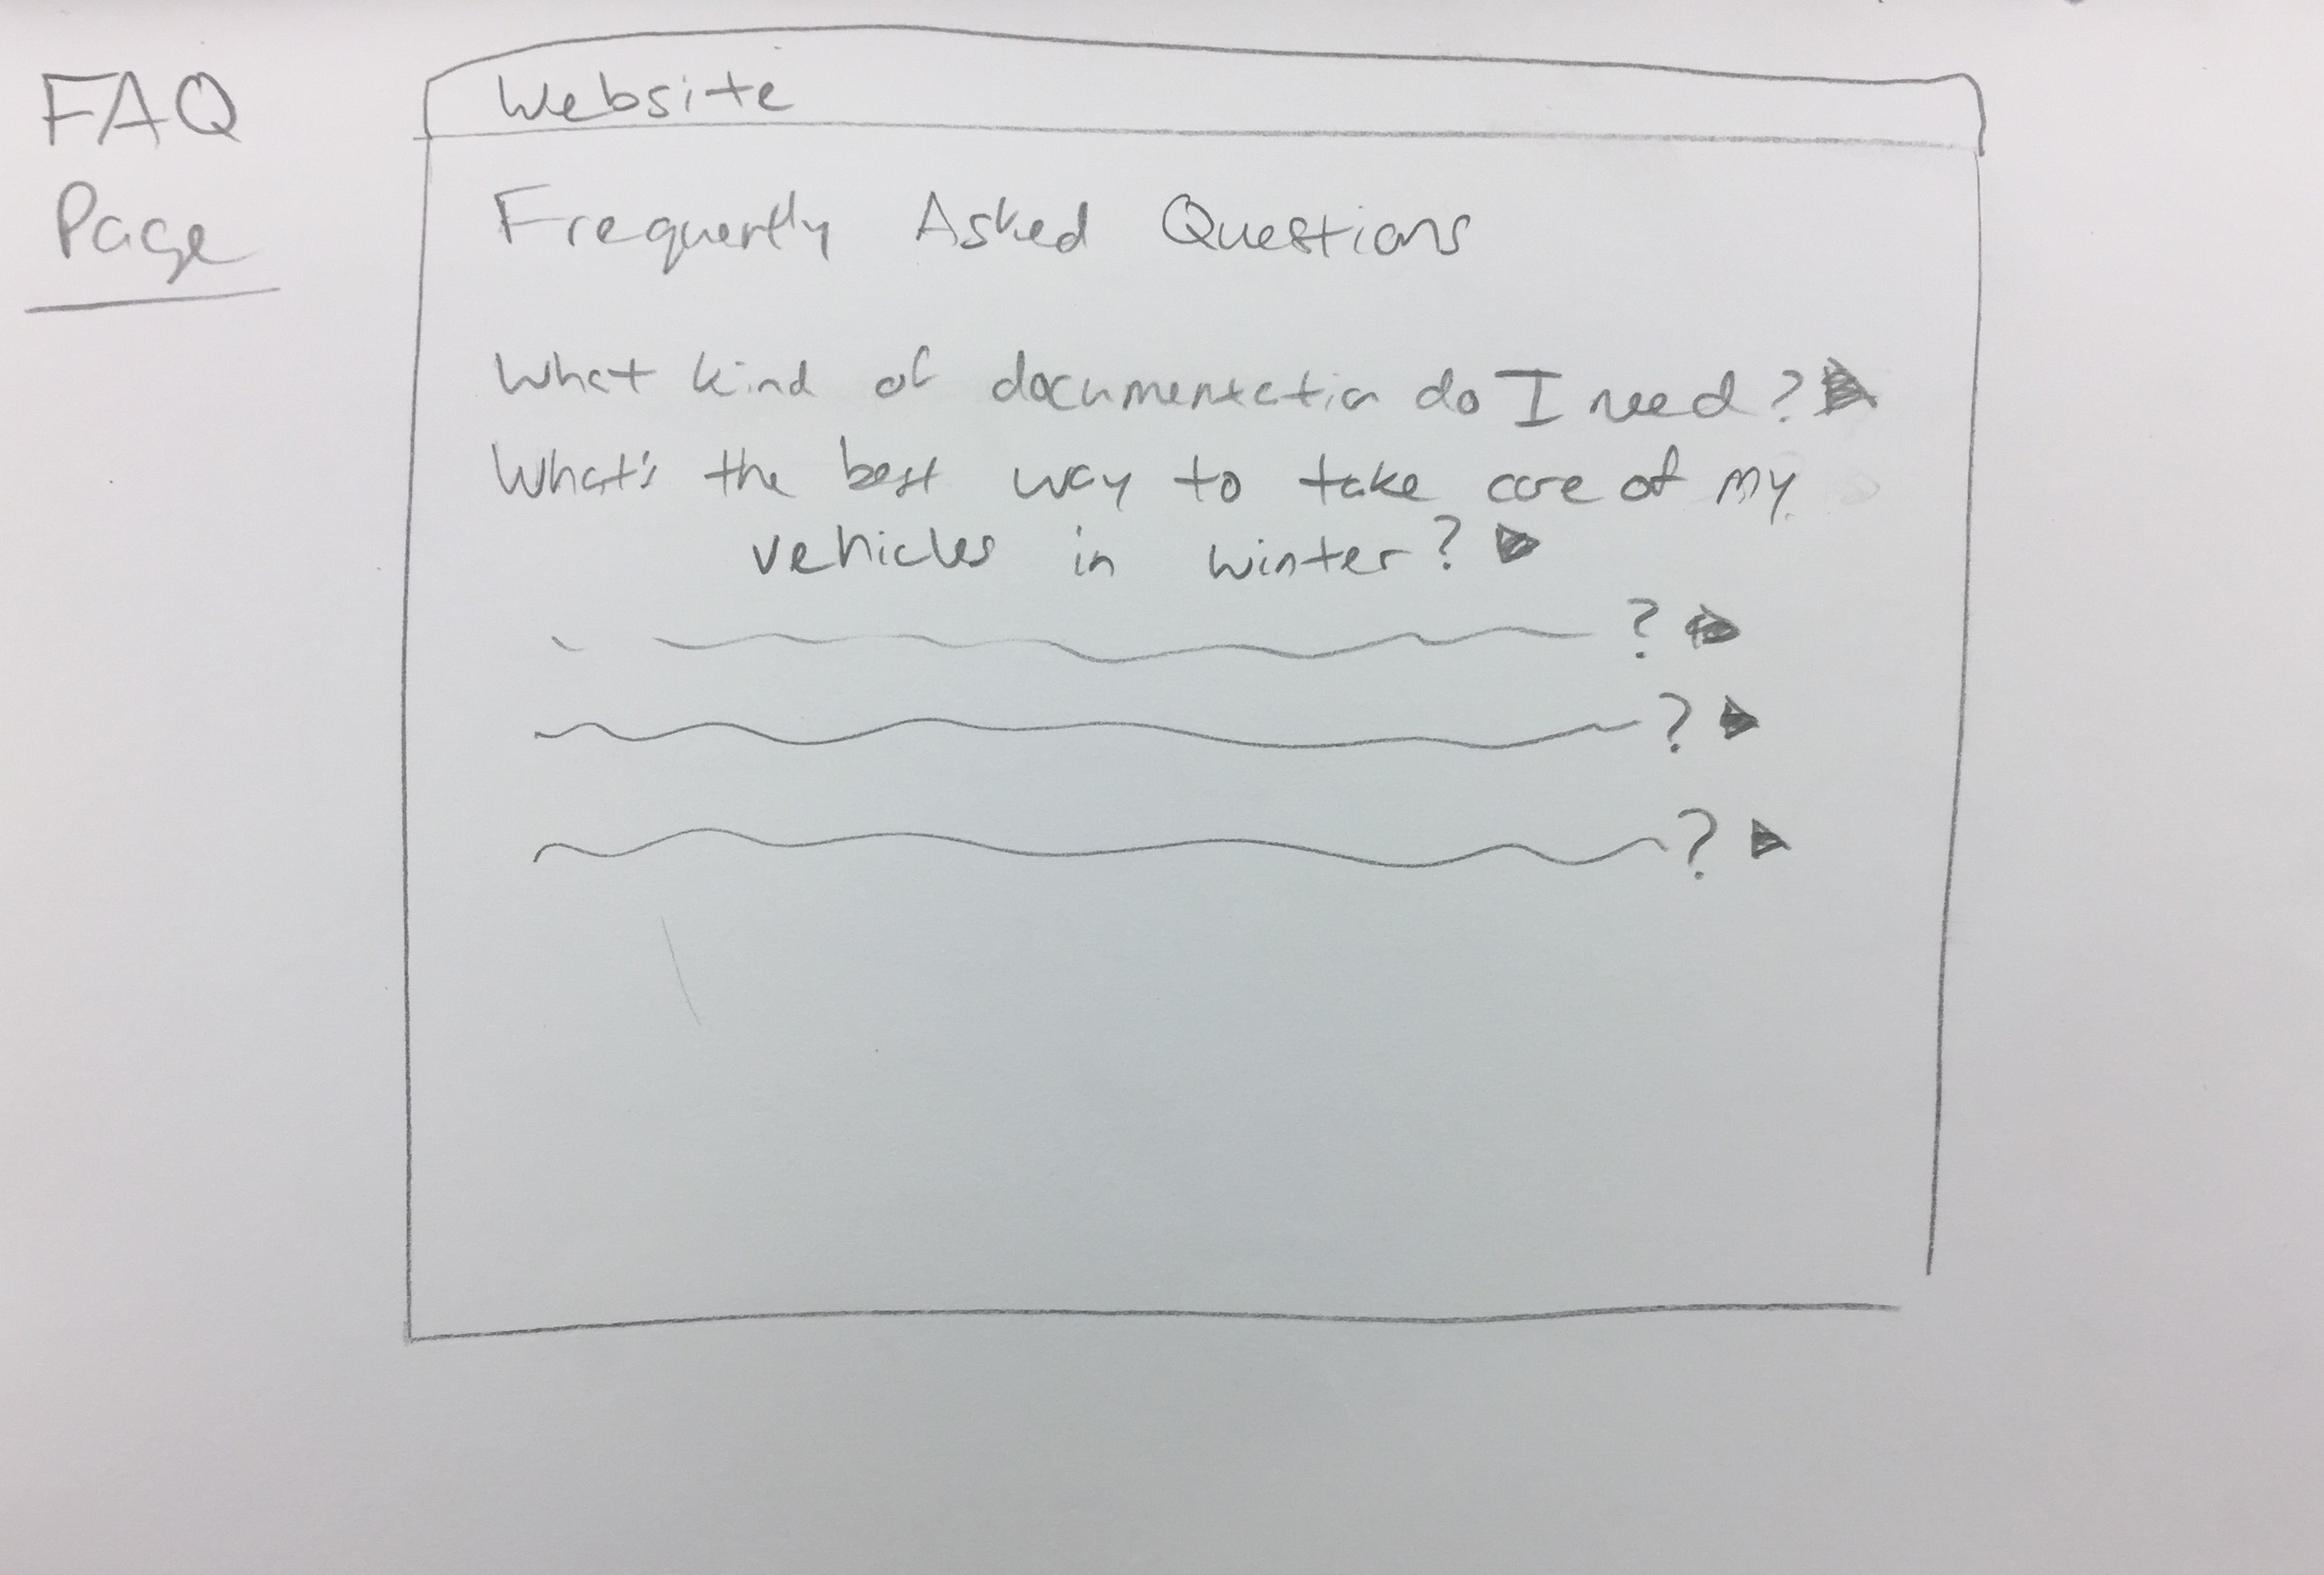 FAQ
Page
Website
Frequently Asked Questions
What kind of documentation do I need?
What's the best way to take care of my
vehicles in winter?
?
?
?